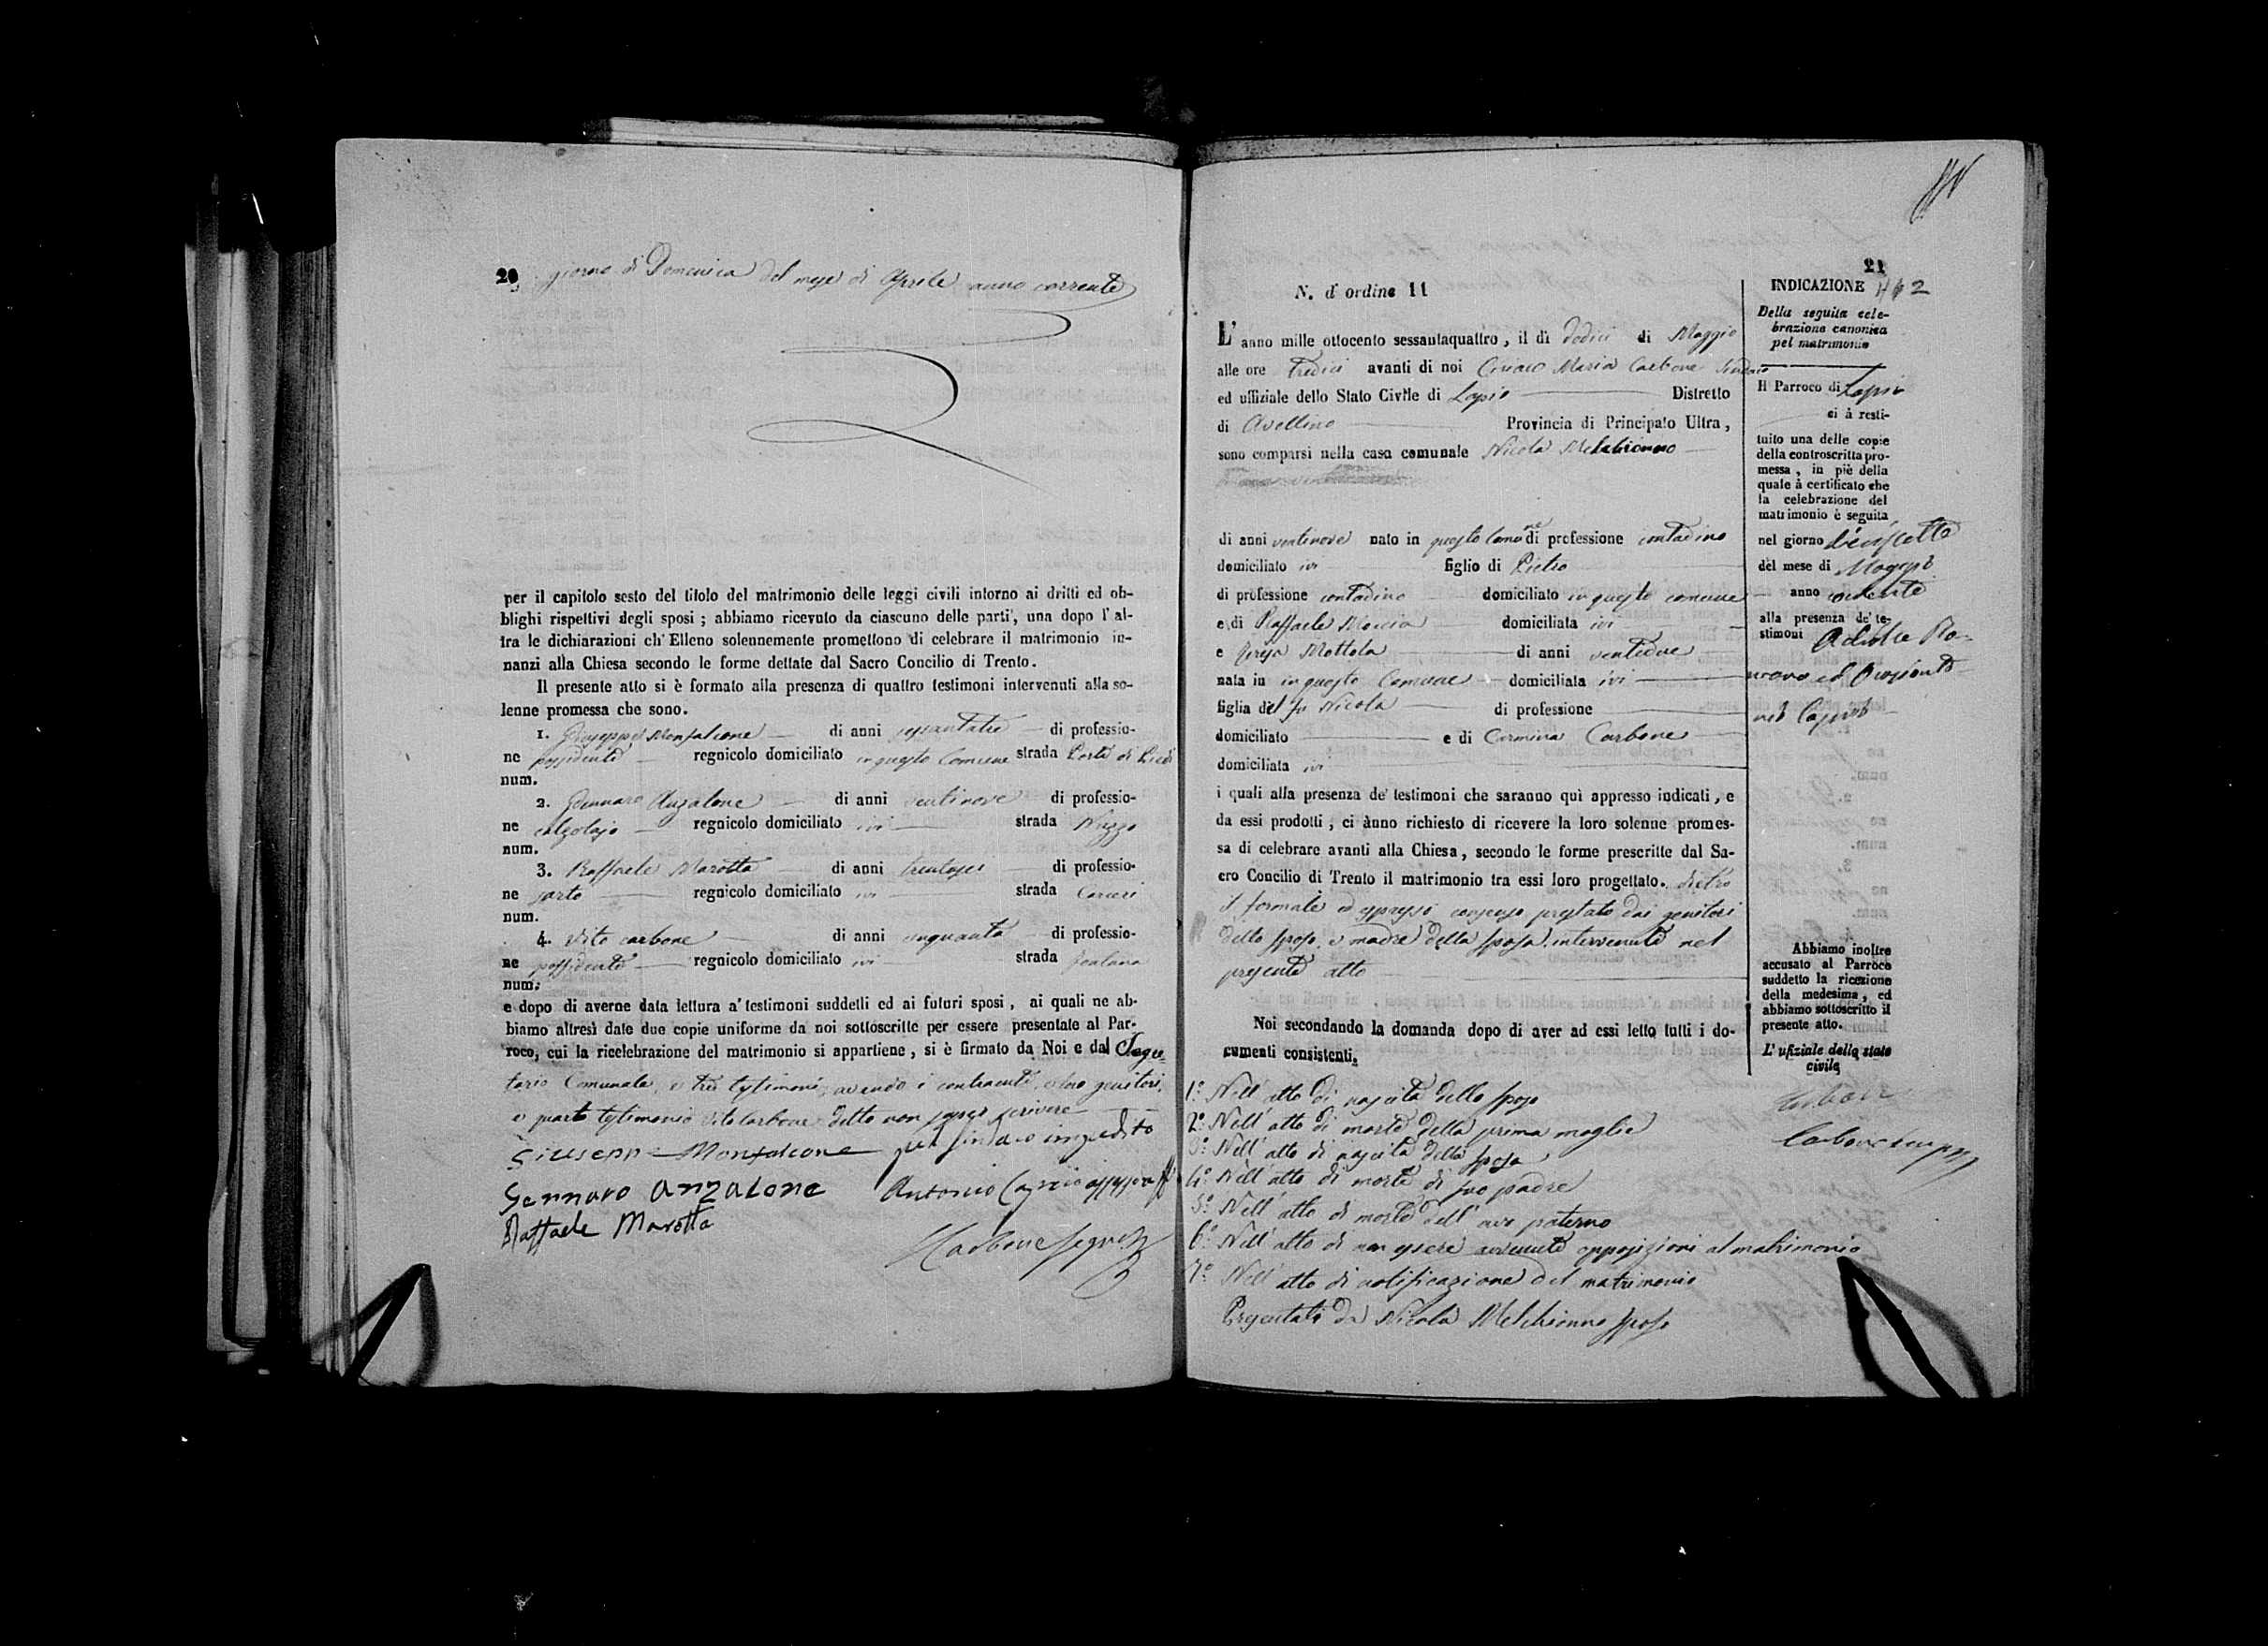 20 giorno di Domenica del mese di Aprile anno corrente
per il capitolo sesto del titolo del matrimonio delle leggi civili intorno ai dritti ed ob-
blighi rispettivi degli sposi ; abbiamo ricevuto da ciascuno delle parti, una dopo l' al-
tra le dichiarazioni ch' Elleno solennemente promettono di celebrare il matrimonio in-
nanzi alla Chiesa secondo le forme dettate dal Sacro Concilio di Trento.
Il presente atto si è formato alla presenza di quattro testimoni intervenuti alla so-
lenne promessa che sono.
1. Giuseppe Monfalcone di anni sessantatre di professio-
ne possidente regnicolo domiciliato in questo Comune strada Porta di
num.
2. Gennaro Anzalone di anni ventinove di professio-
ne calzolajo regnicolo domiciliato ivi strada
num.
3. Raffaele Marotta di anni trentasei di professio-
ne sarto regnicolo domiciliato ivi strada Carceri
num.
4. Vito carbone di anni cinquanta di professio-
ne possidente regnicolo domiciliato ivi strada fontana
num.
e dopo di averne data lettura a' testimoni suddetti ed ai futuri sposi, ai quali ne ab-
biamo altresì date due copie uniforme da noi sottoscritte per essere presentate al Par-
roco, cui la ricelebrazione del matrimonio si appartiene, si è firmato da Noi e dal Segre-
tario Comunale, e tre testimoni, avendo i contraenti, loro genitori,
e quarto testimonio Vito Carbone detto non saper scrivere
Giuseppe Monfalcone pel sindaco impedito
Gennaro Anzalone Antonio
Raffaele Marotta
Carbone Segret
21
N. d' ordine 11
L' anno mille ottocento sessantaquattro, il di dodici di Maggio
alle ore tredici avanti di noi Ciriaco Maria Carbone Sindaco
ed uffiziale dello Stato Civile di Lapio Distretto
di Avellino Provincia di Principato Ultra,
sono comparsi nella casa comunale Nicola Melchionno
di anni ventinove nato in questo Comune di professione contadino
domiciliato ivi figlio di Pietro
di professione contadino domiciliato in questo comune
e di Raffaela domiciliata ivi
e Teresa Mottola di anni ventidue
nata in in questo Comune domiciliata ivi
figlia del fu Nicola di professione
domiciliato e di Carmina Carbone
domiciliata ivi
i quali alla presenza de' testimoni che saranno qui appresso indicati, e
da essi prodotti, ci ànno richiesto di ricevere la loro solenne promes-
sa di celebrare avanti alla Chiesa, secondo le forme prescritte dal Sa-
cro Concilio di Trento il matrimonio tra essi loro progettato. dietro
il formale ed espresso consenso prestato dai genitori
dello sposo, e madre della sposa intervenuti nel
presente atto
Noi secondando la domanda dopo di aver ad essi letto tutti i do-
cumenti consistenti.
1º Nell' atto di nascita dello sposo
2º Nell' atto di morte della prima moglie
3º Nell' atto di nascita della sposa
4º Nell' atto di morte di suo padre
5º Nell' atto di morte dell' avo paterno
6º Nell' atto di non essere avvenute opposizioni al matrimonio
7º Nell' atto di notificazione del matrimonio
Presentati da Nicola Melchionno sposo
INDICAZIONE
Della seguita cele-
brazione canonica
pel matrimonio
Il Parroco di Lapio
ci à resti-
tuito una delle copie
della controscritta pro-
messa, in piè della
quale à certificato che
la celebrazione del
matrimonio è seguita
nel giorno diciassette
del mese di Maggio
anno corrente
alla presenza de' te-
stimoni
Abbiamo inoltre
accusato al Parroco
suddetto la ricezione
della medesima, ed
abbiamo sottoscritto il
presente atto.
L' ufiziale dello stato
civile
Carbone